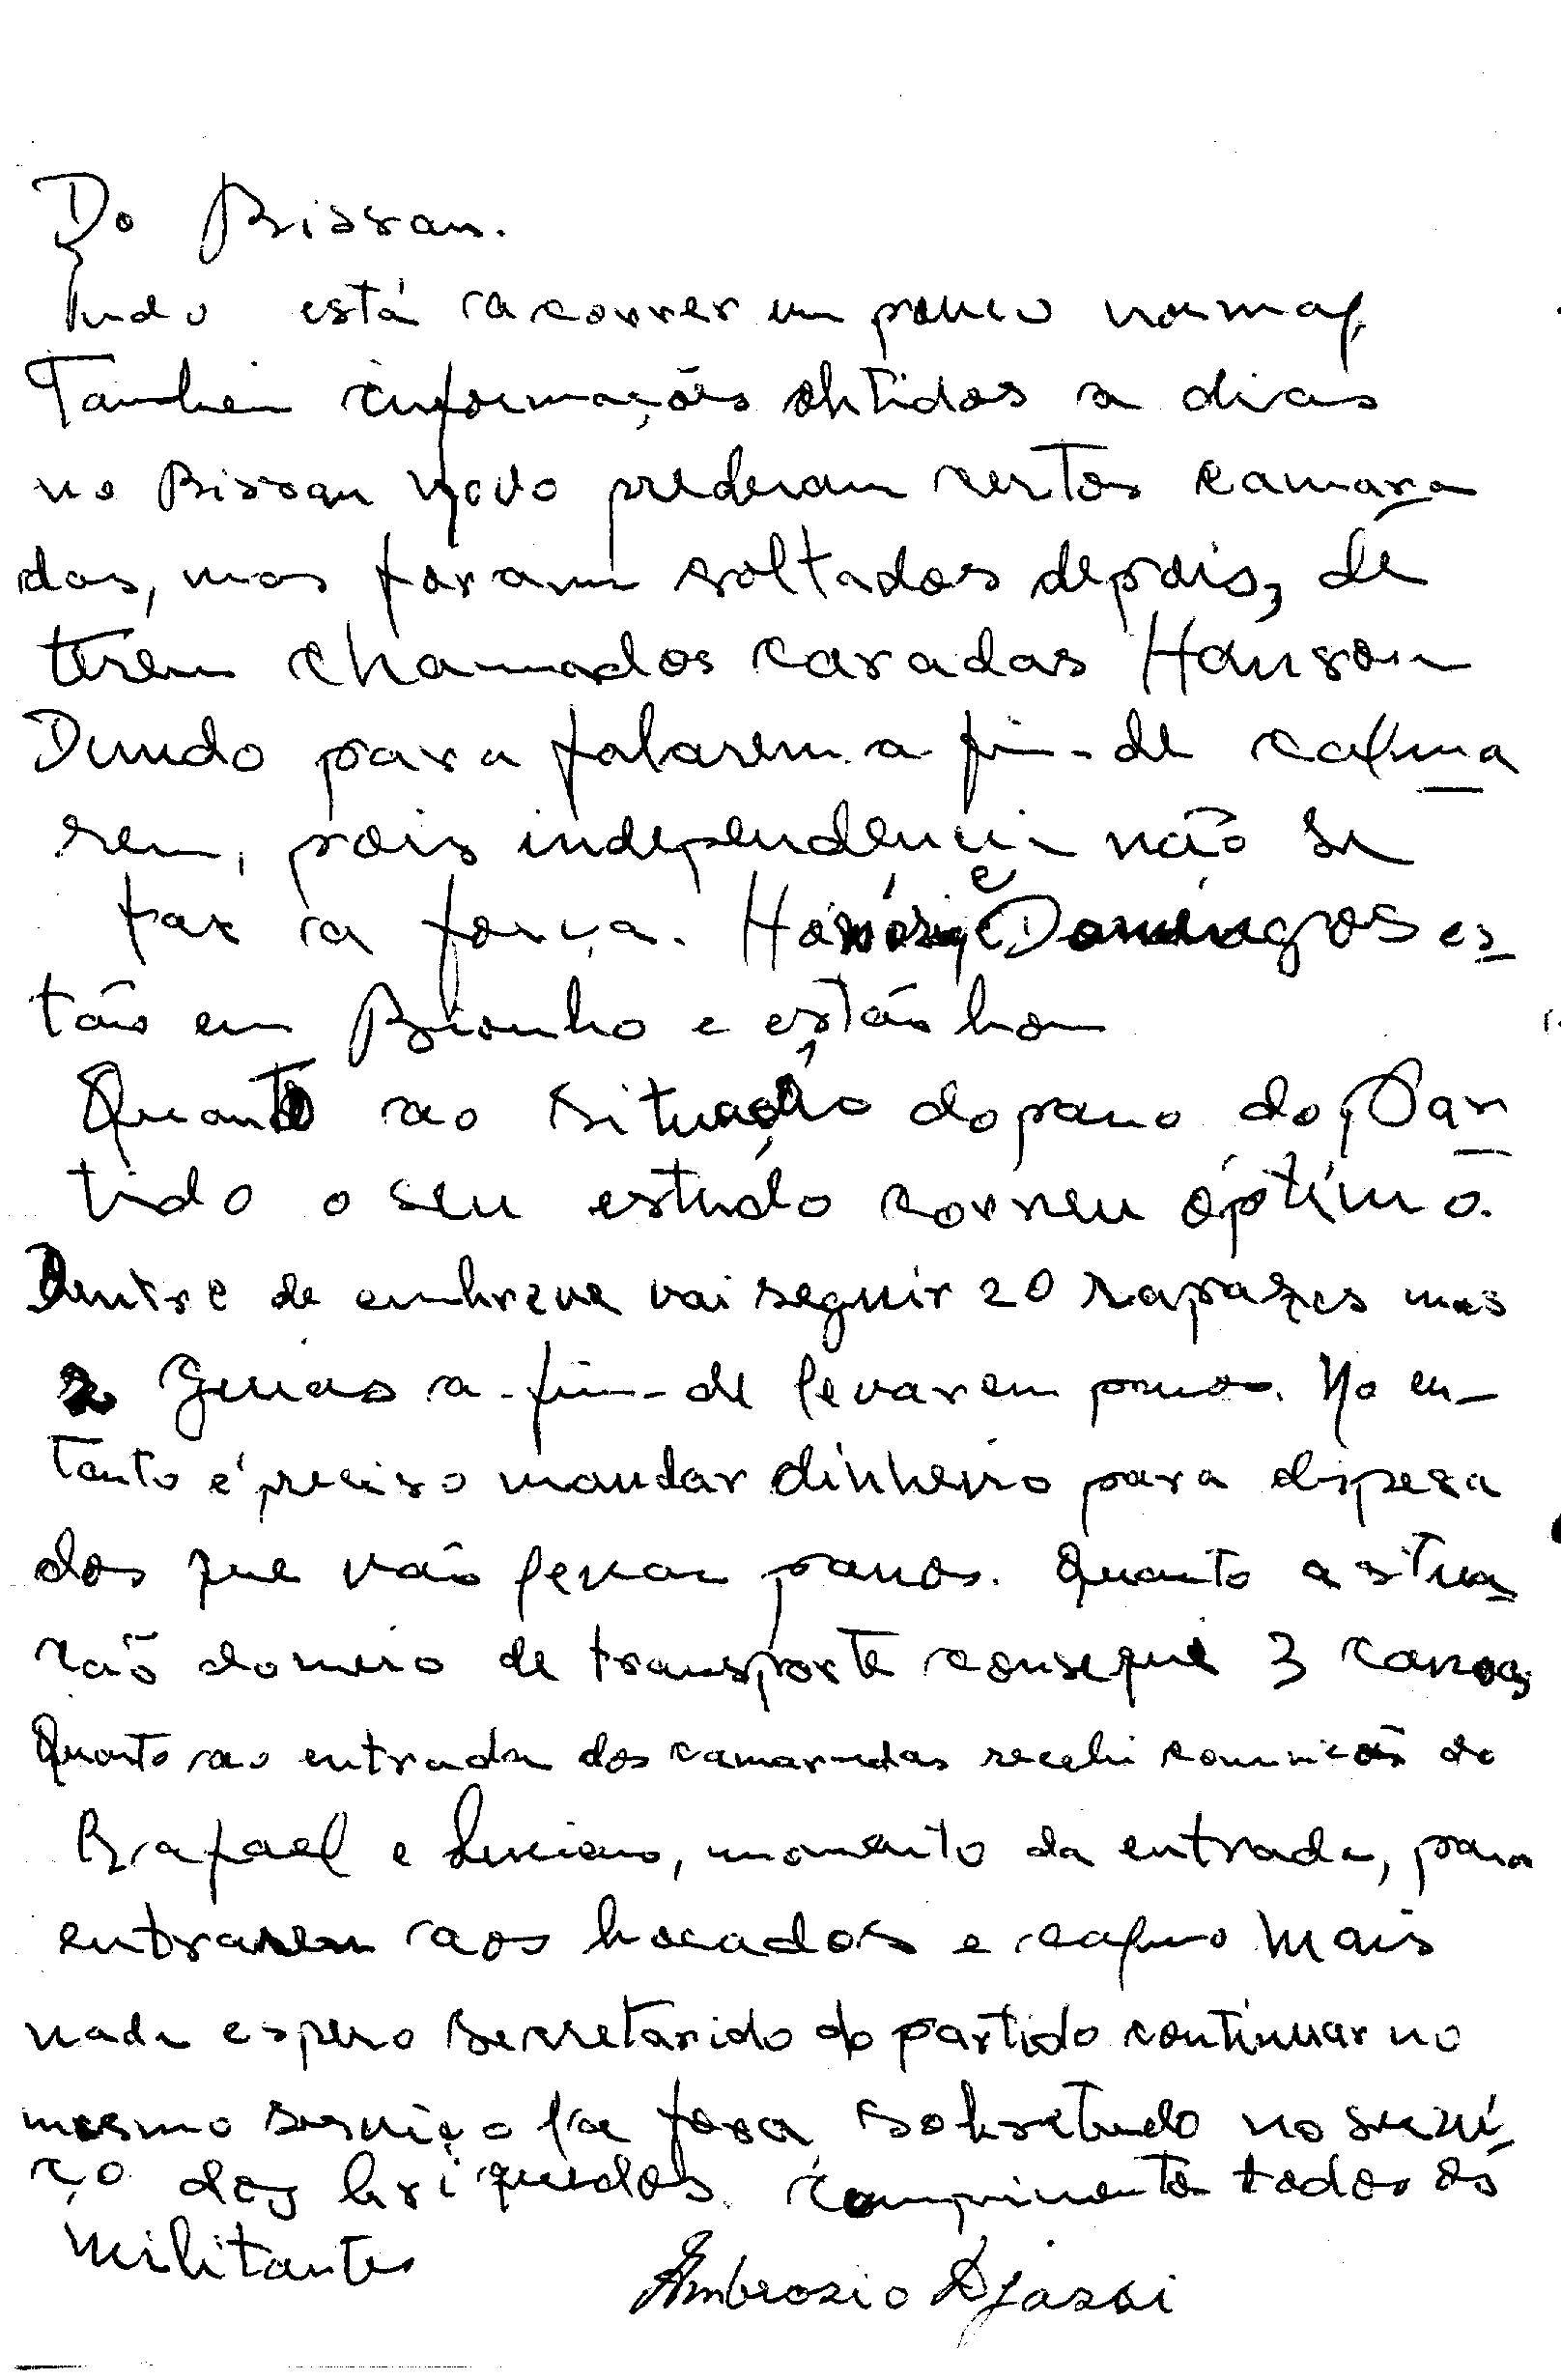 Do Bissau.
Tudo está a correr um pouco normal,
Tambem informações obtidas a dias
no Bissau novo prederam certos camara
das, mas foram soltados depois, de
terem chamados caradas
Dundo para falarem a-fim-de calma
rem, pois independência não se
faz a força. Honório e Domingos es
tão em e estão bom
Quanto ao situação do pano do Par
tido o seu estudo correu óptimo.
Dentre de embreve vai seguir 20 rapazes mas
2 Guias a-fim-de levarem panos. No en-
tanto é preciso mandar dinheiro para dispesa
dos que vão levar panos. Quanto a situa
ção do meio de transporte consegui 3 canoas
Quanto ao entrada dos camaradas recebi do
Rafael e Luciano, momento da entrada, para
entrarem aos bocados e calmo mais
nada espero Secretarido do partido continuar no
mesmo serviço la fora sobretudo no servi
ço dos briquedos. Comprimenta todos os
militantes
Ambrosio Djassi